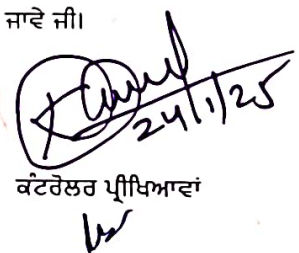 ਜਾਵੇ ਜੀ।
24/1/25
ਕੰਟਰੋਲਰ ਪ੍ਰੀਖਿਆਵਾਂ